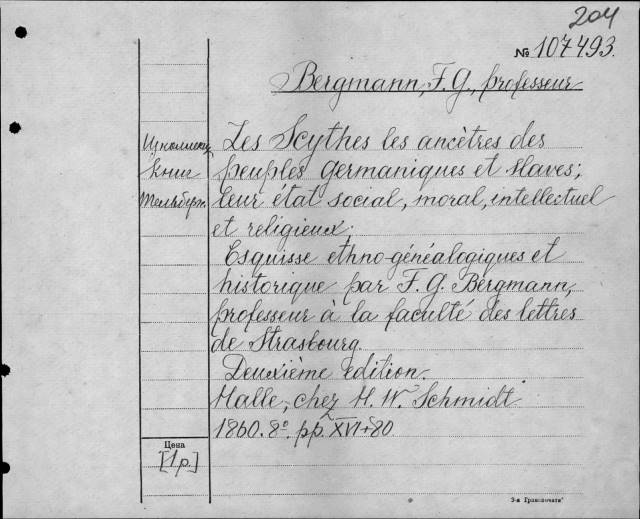 204
№ 107493.
Bergmann, F. G., professeur
Les Scythes les ancêtres des
peuples germaniques et slaves;
leur état social, moral, intellectuel
et religieux;
Esquisse ethno-généalogiques et
historique par F. G. Bergmann,
professeur à la faculté des lettres
de Strasbourg.
Deuxième édition.
Halle, chez H. W. Schmidt.
1860. 8º. pp. XVI+80.
Изъ
книг
Тельберг.
Цена
[1 р.]
3-я Гравопечати"